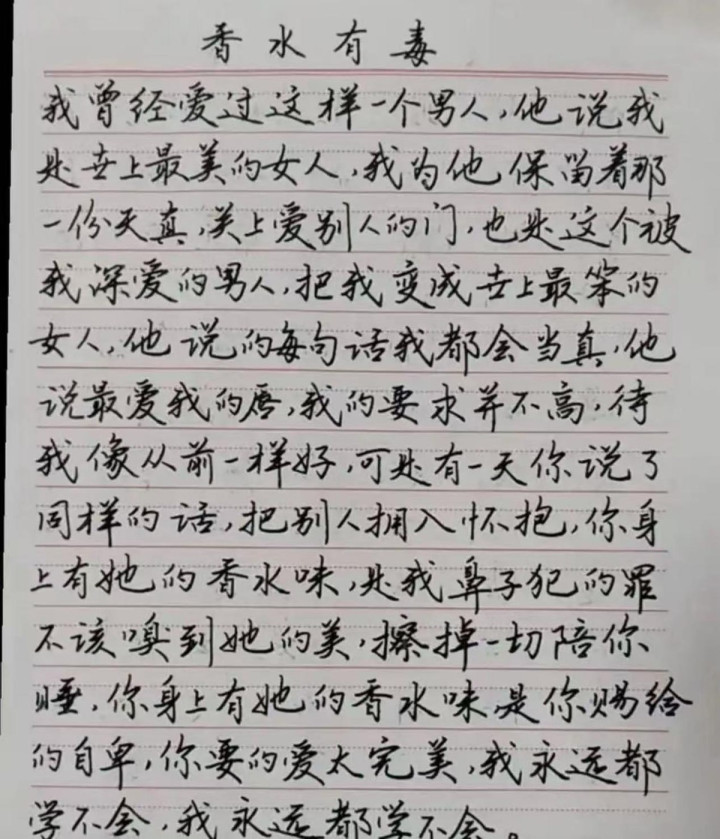 香水有毒
我曾经爱过这样一个男人,他说我
是世上最美的女人,我为他保留着那
一份天真,关上爱别人的门,也是这个被
我深爱的男人,把我变成世上最笨的
女人,他说的每句话我都会当真,他
说最爱我的唇,我的要求并不高,待
我像从前一样好,可是有一天你说了
同样的话,把别人拥入怀抱,你身
上有她的香水味,是我鼻子犯的罪
不该嗅到她的美,擦掉一切陪你
睡,你身上有她的香水味,是你赐给
的自卑,你要的爱太完美,我永远都
学不会,我永远都学不会。